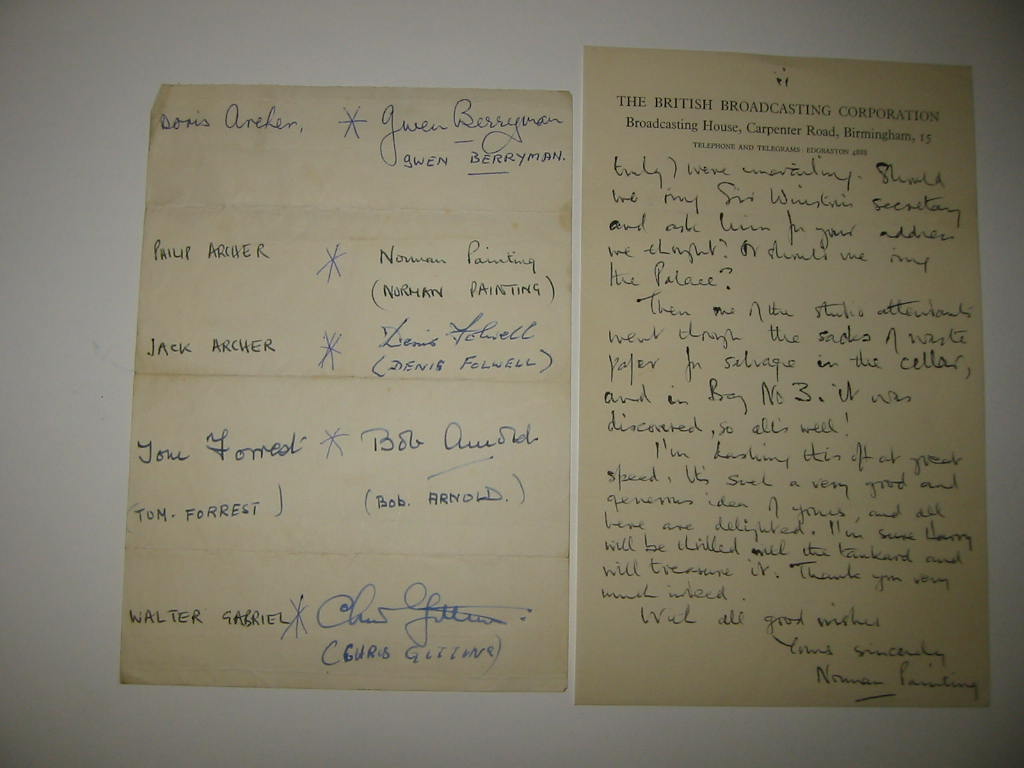 Doris Archer, * Gwen Berryman
GWEN BERRYMAN.
PHILIP ARCHER * Norman Painting
(NORMAN PAINTING)
JACK ARCHER * Denis Folwell
(DENIS FOLWELL)
Tom Forrest * Bob Arnold
(TOM. FORREST) (BOB. ARNOLD.)
WALTER GABRIEL * Chris Gittins
(CHRIS GITTINS)
THE BRITISH BROADCASTING CORPORATION
Broadcasting House, Carpenter Road, Birmingham, 15
TELEPHONE AND TELEGRAMS: EDGBASTON 4888
truly) were unavailing. Should
we ring Sir Winston's secretary
and ask him for your address
we thought? Or should we ring
the Palace?
Then one of the studio attendants
went through the sacks of waste
paper for salvage in the cellar,
and in Bag No 3. it was
discovered, so all's well!
I'm dashing this off at great
speed. It's such a very good and
generous idea of yours, and all
here are delighted. I'm sure Harry
will be thrilled with the tankard and
will treasure it. Thank you very
much indeed.
With all good wishes
Yours sincerely
Norman Painting